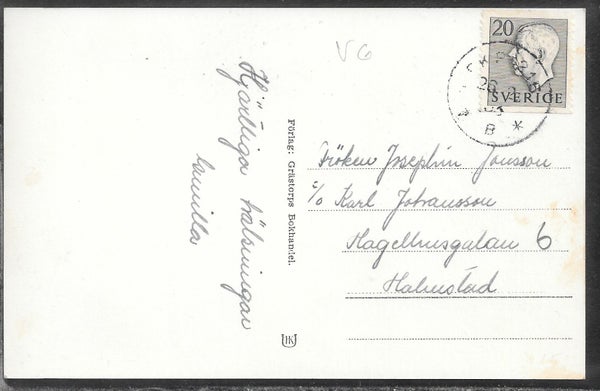 V6
20
SVERIGE
B *
Hjärtliga hälsningar
Gunilla
Förlag: Grästorps Bokhandel.
HK
Fröken Josephin Jonsson
c/o Karl Johansson
Hagelbusgatan 6
Halmstad